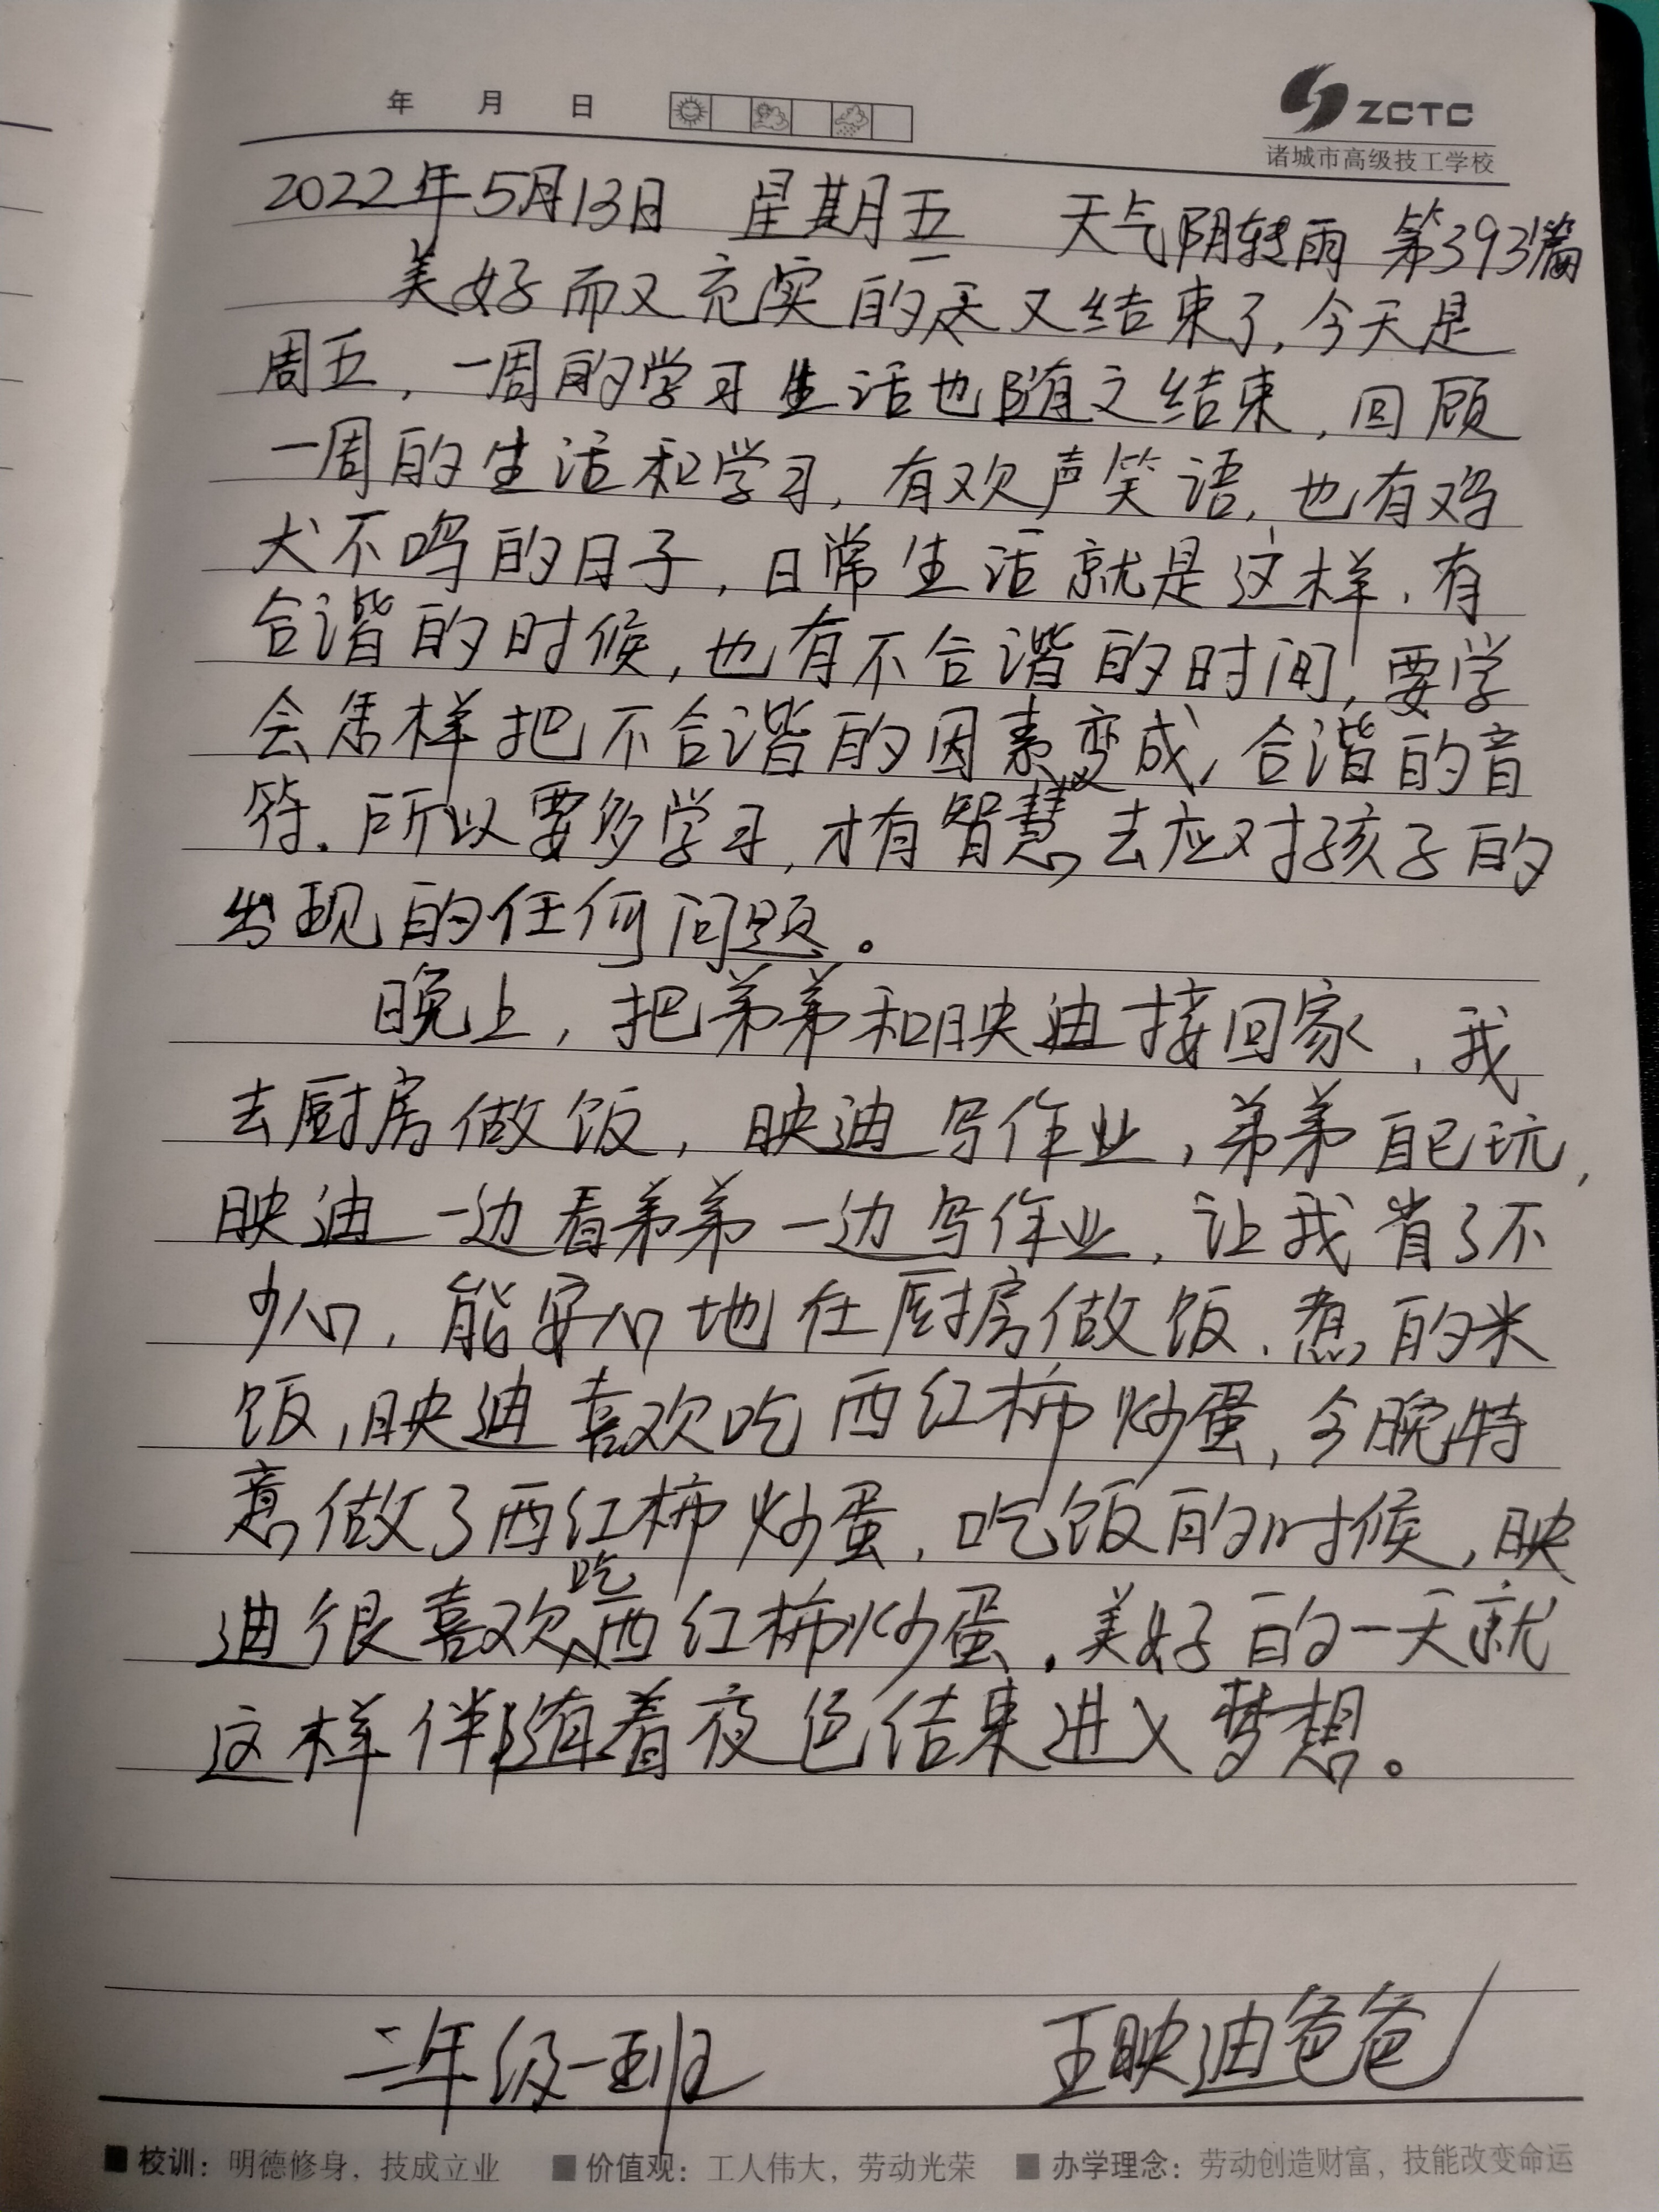 年 月 日
ZCTC
诸城市高级技工学校
2022年5月13日 星期五 天气阴转雨 第393篇
美好而又充实的一天又结束了,今天是
周五,一周的学习生活也随之结束,回顾
一周的生活和学习,有欢声笑语,也有鸡
犬不鸣的日子,日常生活就是这样,有
合谐的时候,也有不合谐的时间,要学
会怎样把不合谐的因素变成,合谐的音
符.所以要多学习,才有智慧去应对孩子的
出现的任何问题。
晚上,把弟弟和映迪接回家,我
去厨房做饭,映迪写作业,弟弟自己玩,
映迪一边看弟弟一边写作业,让我省了不
少心,能安心地在厨房做饭.煮的米
饭,映迪喜欢吃西红柿炒蛋,今晚特
意做了西红柿炒蛋,吃饭的时候,映
迪很喜欢吃西红柿炒蛋.美好的一天就
这样伴随着夜色结束进入梦想。
二年级一班 王映迪爸爸
■校训:明德修身,技成立业 ■价值观:工人伟大,劳动光荣 ■办学理念:劳动创造财富,技能改变命运